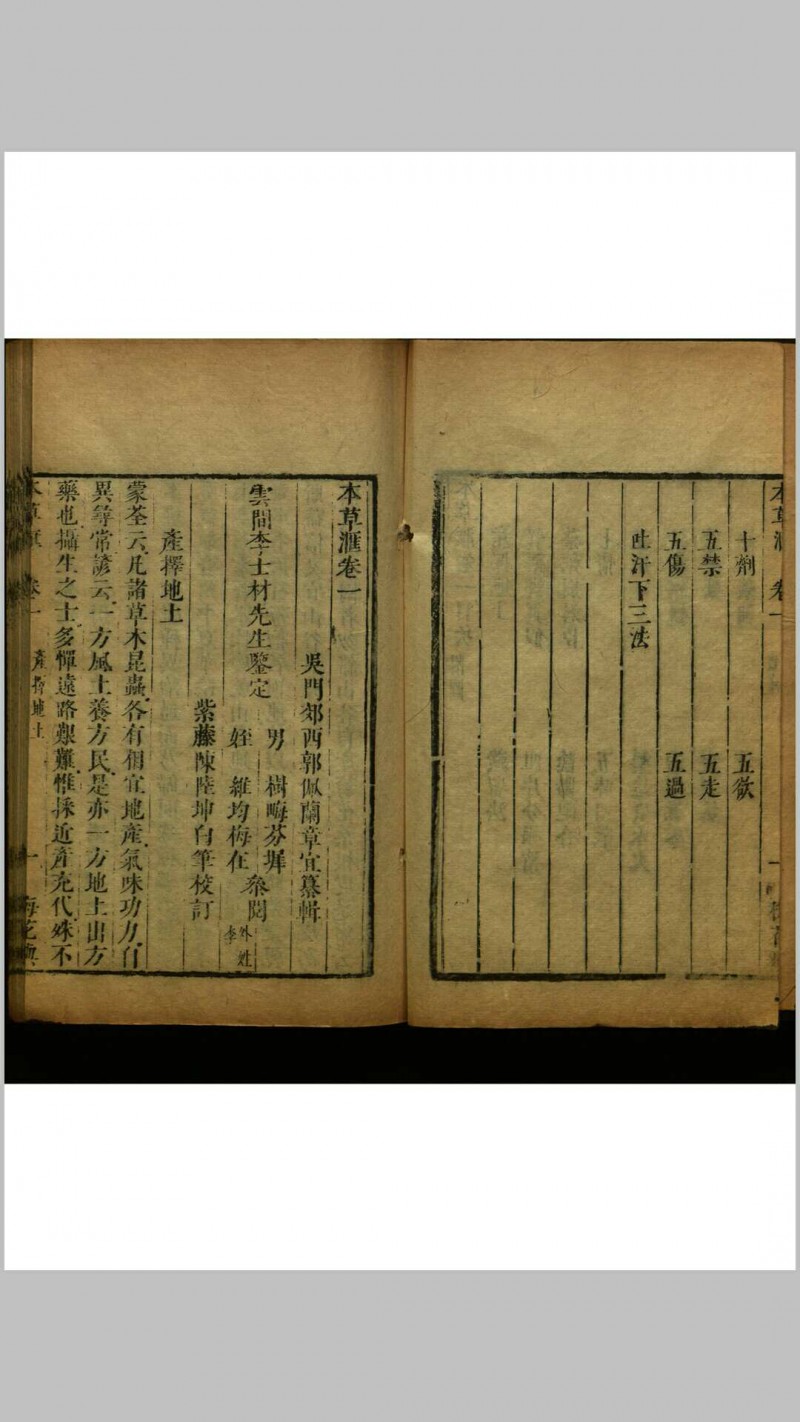 本草滙 卷一
十劑 五欲
五禁 五走
五傷 五過
吐汗下三法
本草滙卷一
吳門郊西郭佩蘭章宜纂輯
雲間李士材先生鑒定
男 樹畮芬墀
姪 維均梅在
叅閱
外姓
李
紫藤陳陸坤白筆校訂
產擇地土
蒙荃云凡諸草木昆蟲各有相宜地產氣味功力自
異尋常諺云一方風土養方民是亦一方地土出方
藥也攝生之士多憚遠路艱難惟採近產充代殊不
本草滙 卷一 產擇地土 一 梅花